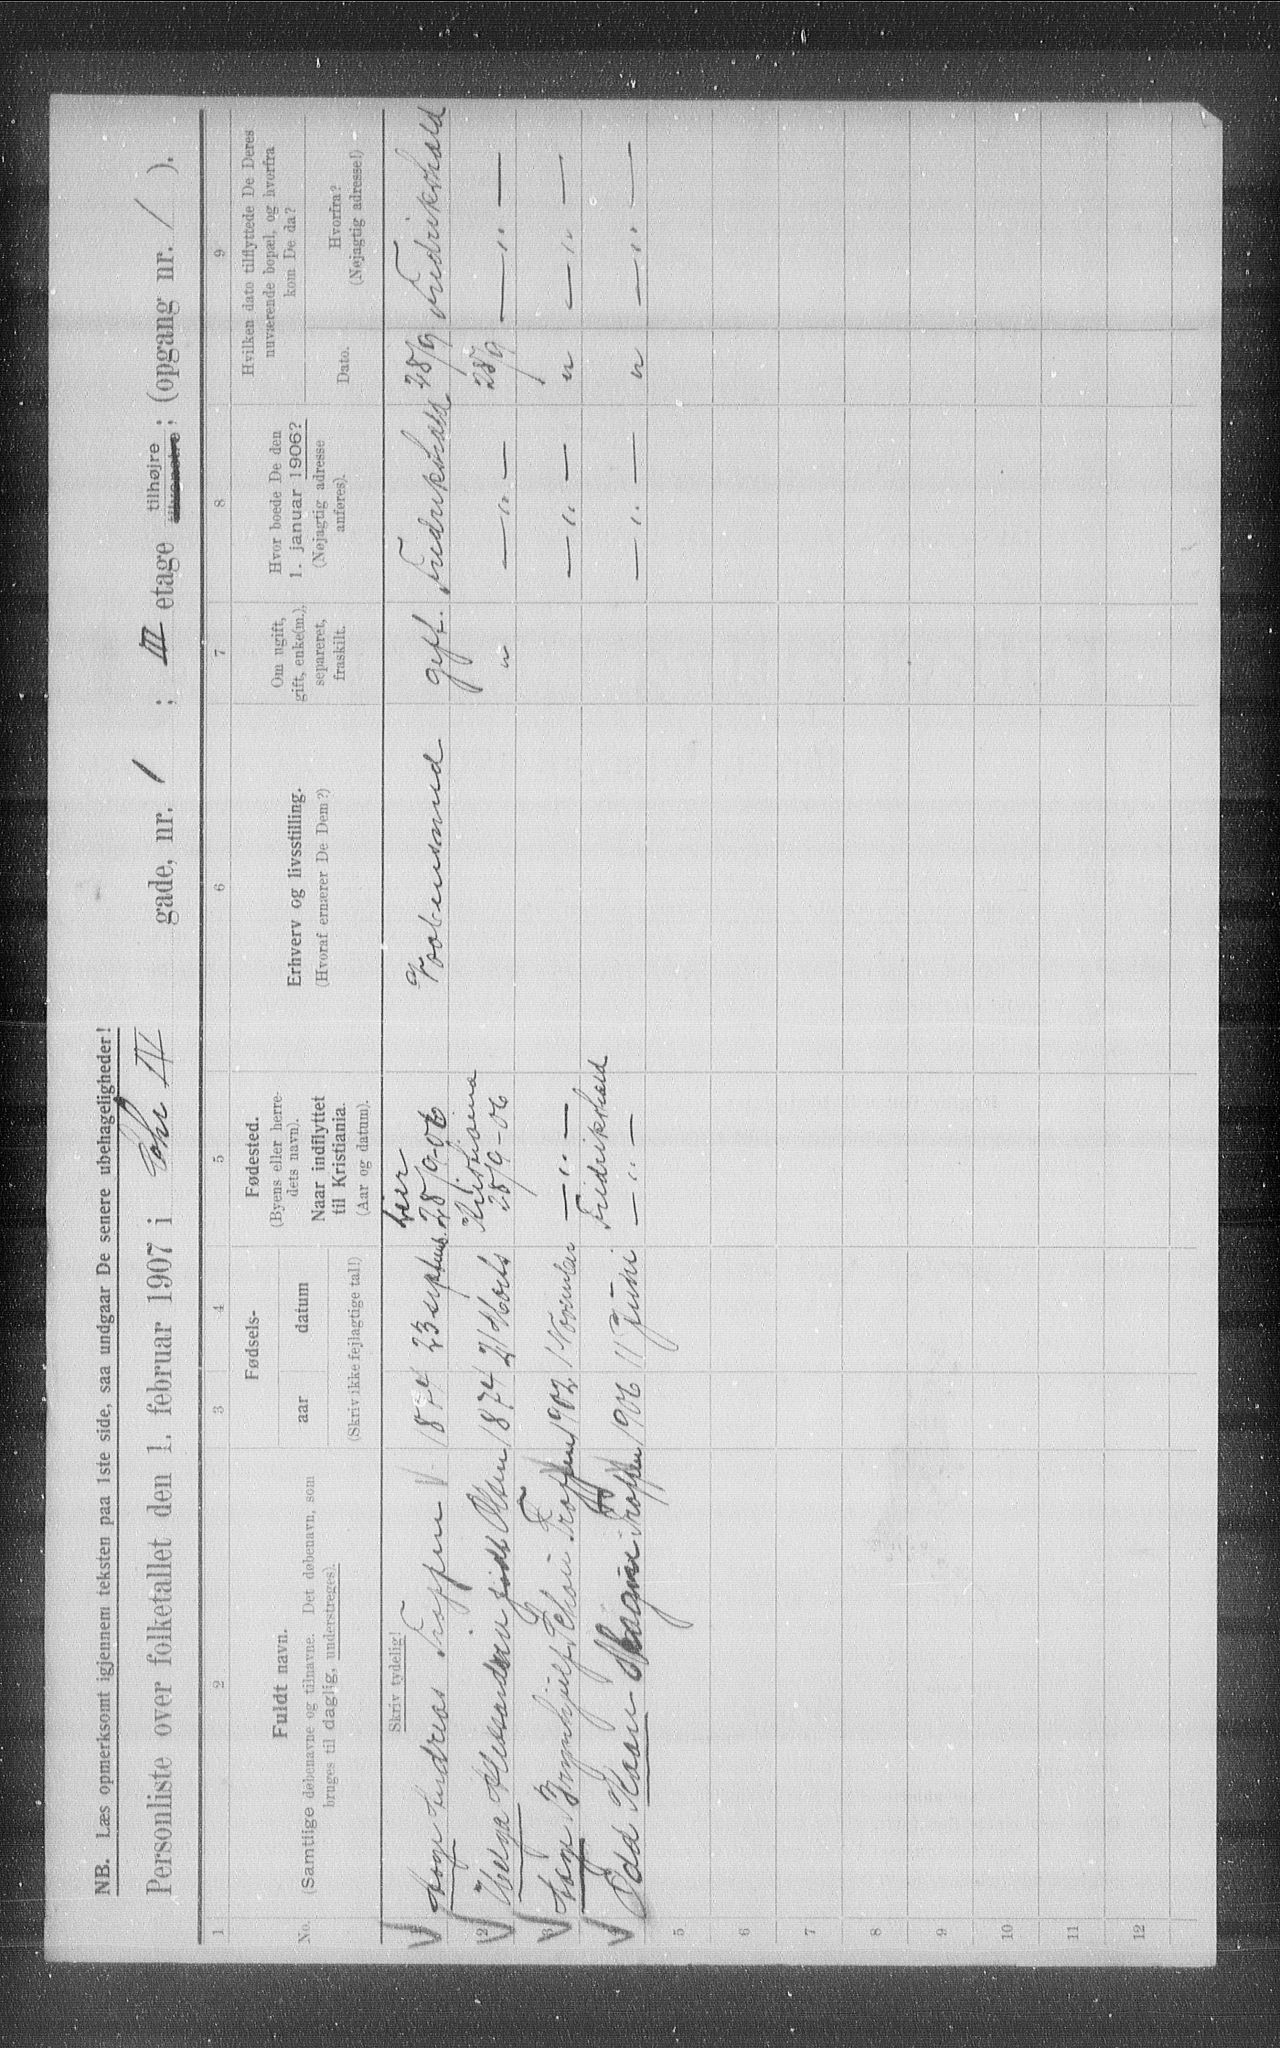 NB. Læs opmerksomt igjennem teksten paa 1ste side, saa undgaar De senere ubehageligheder!
Personliste over folketallet den 1. februar 1907 i Chr IV gade, nr. 1 ; III etage tilhøjre tilvenstre; (opgang nr. / ).
1 2 3 4 5 6 7 8 9
No.
Fuldt navn.
(Samtlige døbenavne og tilnavne. Det døbenavn, som
bruges til daglig, understreges).
Skriv tydelig!
Fødsels-
aar datum
(Skriv ikke fejlagtige tal!)
Fødested.
(Byens eller herre-
dets navn).
Naar indflyttet
til Kristiania.
(Aar og datum).
Erhverv og livsstilling.
(Hvoraf ernærer De Dem?)
Om ugift,
gift, enke(m.),
separeret,
fraskilt.
Hvor boede De den
1. januar 1906?
(Nøjagtig adresse
anføres).
Hvilken dato tilflyttede De Deres
nuværende bopæl, og hvorfra
kom De da?
Dato.
Hvorfra?
(Nøjagtig adresse!)
Aage Andreas Troppen 1874 23 septemb. Lier 28/9-06 gift. Fredrikshald 28/9 Fredrikshald
2 Helga Alexandra født Olsen 1874 21 Marts Kristiania 28/9-06 " — " — 28/9 — " —
3 Aage Brynhjulf Troppen 1902 1 November — " — — " — " — " —
Odd Kaare Troppen 1906 11 Juni Fredrikshald — " — — " — " — " —
5
6
7
8
9
10
11
12